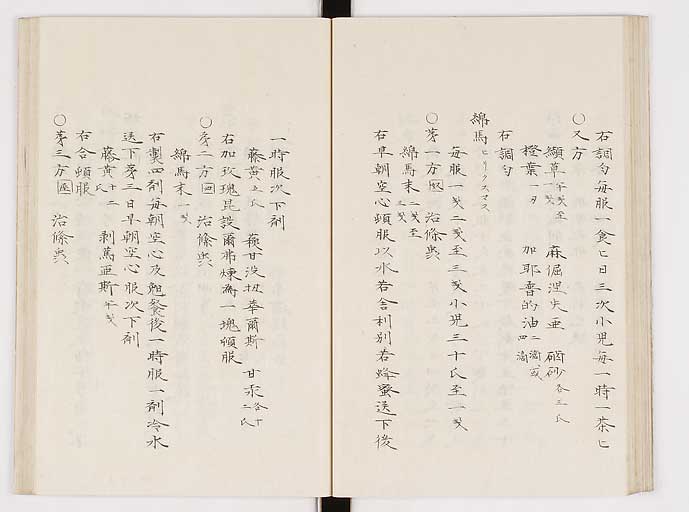 右調匀毎服一食匕日三次小児毎一時一茶匕
〇又方
纈草 半戔至一戔 麻倔涅矢亜 硇砂 各三氏
橙葉 一夕 加耶普的油 二滴或四滴
右調匀
綿馬 ヒリクスマス
毎服一戔二戔至三戔小児三十氏至一戔
〇第一方 治條虫
綿馬末 二戔至三戔
右早朝空心頓服以水若舎利別若蜂蜜送下後
一時服次下剤
藤黄 五氏 蕤甘没扭奉爾斯 甘汞 各十二氏
右加玫瑰昆設爾弗煉為一塊頓服
〇第二方 治條虫
綿馬末 一戔
右製四剤毎朝空心及晩餐後一時服一剤冷水
送下第三日早朝空心服次下剤
藤黄 十二氏 剥篤亜斯 半戔
右合頓服
〇第三方 治條虫